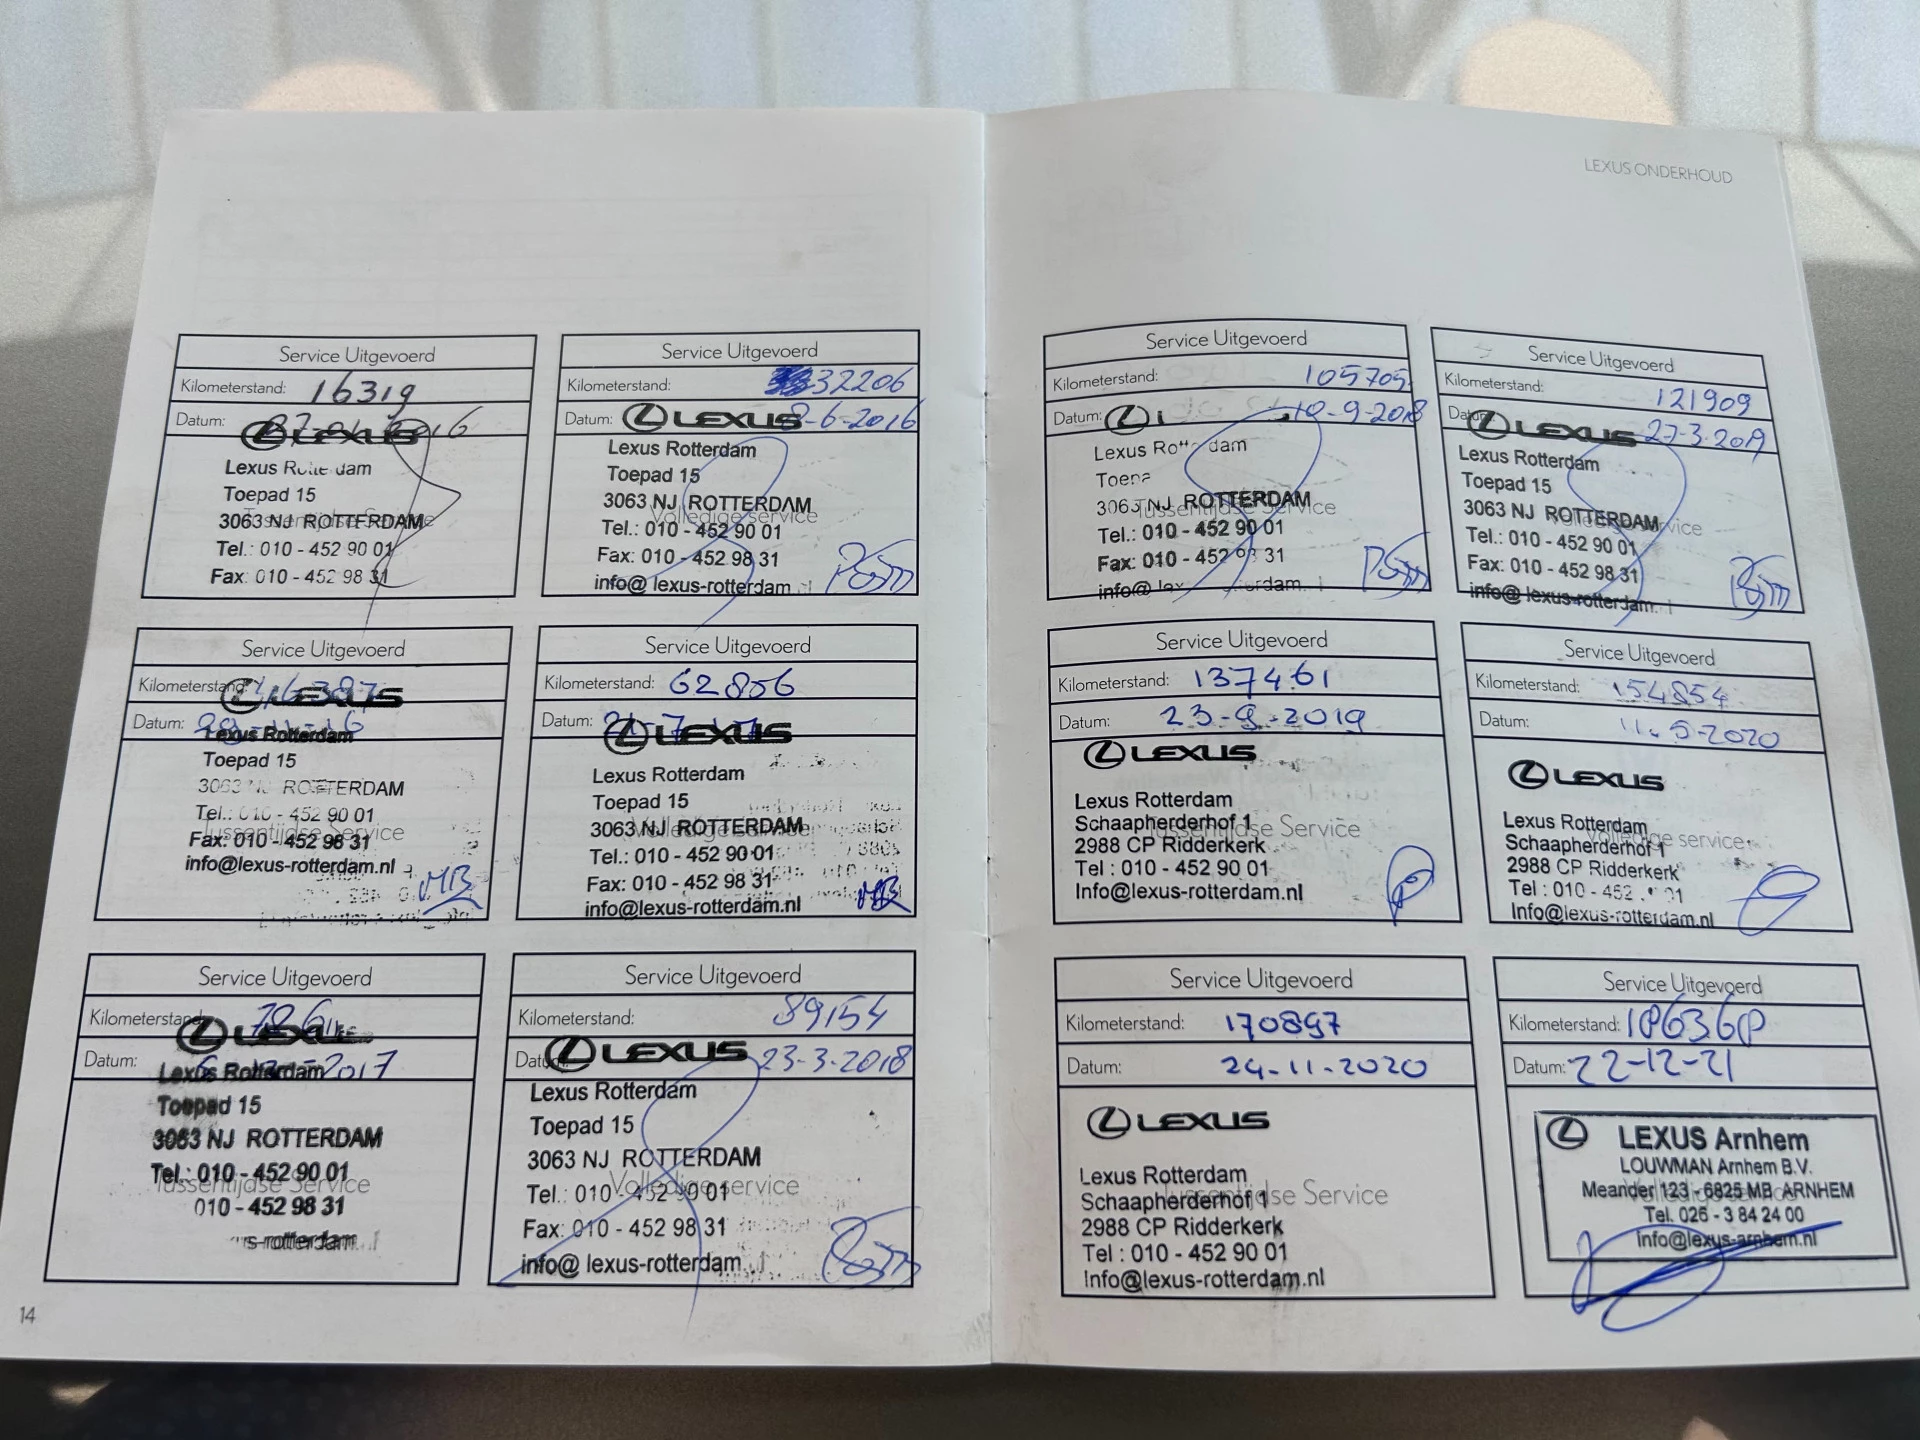 LEXUS ONDERHOUD
Service Uitgevoerd
Kilometerstand: 16319
Datum:
LEXUS
Lexus Rotterdam
Toepad 15
3063 NJ ROTTERDAM
Tussentijdse Service
Tel.: 010 - 452 90 01
Fax: 010 - 452 98 31
Service Uitgevoerd
Kilometerstand: 32206
Datum: 8-6-2016
LEXUS
Lexus Rotterdam
Toepad 15
3063 NJ ROTTERDAM
Volledige service
Tel.: 010 - 452 90 01
Fax: 010 - 452 98 31
info@lexus-rotterdam
Service Uitgevoerd
Kilometerstand:
Datum:
LEXUS
Lexus Rotterdam
Toepad 15
3063 NJ ROTTERDAM
Tel.: 010 - 452 90 01
Tussentijdse Service
Fax: 010 - 452 98 31
info@lexus-rotterdam.nl
MB
Service Uitgevoerd
Kilometerstand: 62806
Datum: 21-7-17
LEXUS
Lexus Rotterdam
Toepad 15
3063 NJ ROTTERDAM
Volledige service
Tel.: 010 - 452 90 01
Fax: 010 - 452 98 31
info@lexus-rotterdam.nl
MB
Service Uitgevoerd
Kilometerstand:
Datum: 2017
LEXUS
Lexus Rotterdam
Toepad 15
3063 NJ ROTTERDAM
Tel.: 010 - 452 90 01
Tussentijdse Service
010 - 452 98 31
s-rotterdam
Service Uitgevoerd
Kilometerstand: 89154
Datum: 23-3-2018
LEXUS
Lexus Rotterdam
Toepad 15
3063 NJ ROTTERDAM
Tel.: 010 - 452 90 01
Volledige service
Fax: 010 - 452 98 31
info@lexus-rotterdam
14
Service Uitgevoerd
Kilometerstand: 105705
Datum: 10-9-2018
Lexus Rotterdam
Toepa
3063 NJ ROTTERDAM
Tussentijdse Service
Tel.: 010 - 452 90 01
Fax: 010 - 452 98 31
info@lex
Service Uitgevoerd
Kilometerstand: 121909
Datum: 27-3-2019
LEXUS
Lexus Rotterdam
Toepad 15
3063 NJ ROTTERDAM
Volledige service
Tel.: 010 - 452 90 01
Fax: 010 - 452 98 31
info@lexus-rotterdam
Service Uitgevoerd
Kilometerstand: 137461
Datum: 23-9-2019
LEXUS
Lexus Rotterdam
Schaapherderhof 1
Tussentijdse Service
2988 CP Ridderkerk
Tel : 010 - 452 90 01
Info@lexus-rotterdam.nl
Service Uitgevoerd
Kilometerstand: 154854
Datum: 11.5-2020
LEXUS
Lexus Rotterdam
Schaapherderhof 1
Volledige service
2988 CP Ridderkerk
Tel : 010 - 452 01
Info@lexus-rotterdam.nl
Service Uitgevoerd
Kilometerstand: 170897
Datum: 24-11-2020
LEXUS
Lexus Rotterdam
Schaapherderhof 1
Tussentijdse Service
2988 CP Ridderkerk
Tel : 010 - 452 90 01
Info@lexus-rotterdam.nl
Service Uitgevoerd
Kilometerstand: 186368
Datum: 22-12-21
LEXUS Arnhem
LOUWMAN Arnhem B.V.
Meander 123 - 6825 MB ARNHEM
Volledige service
Tel. 026 - 3 84 24 00
info@lexus-arnhem.nl